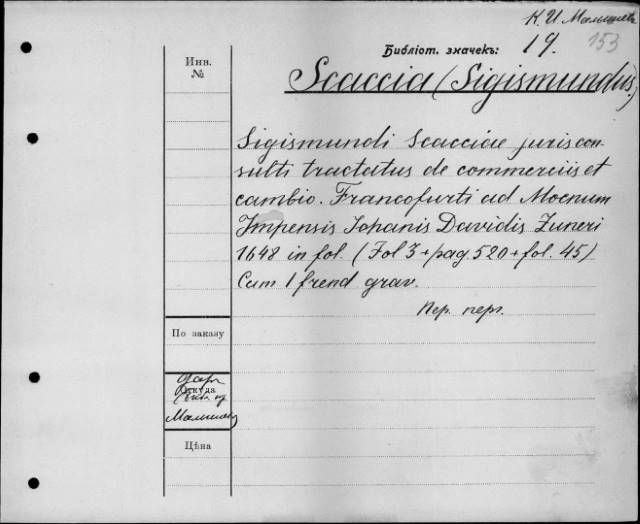 К. И. Малышева
153
Библіот. значекъ: 19.
Инв.
№
Scaccia (Sigismundus)
Sigismundi Scacciae juriscon-
sulti tractatus de commerciis et
cambio. Francofurti ad Moenum
Impensis Iohanis Davidis Zuneri
1648 in fol. (Fol 3 + pag. 520 + fol. 45)
Cum 1 frend grav.
Пер. перг.
По заказу
Даръ
Откуда
Цѣна